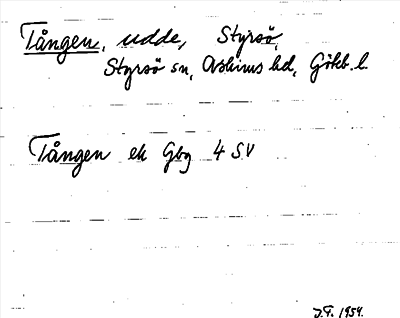 Tången, udde, Styrsö,
Styrsö sn, Askims hd, Gökb. l.
Tången ek Gbg 4 SV
J.F. 1954.